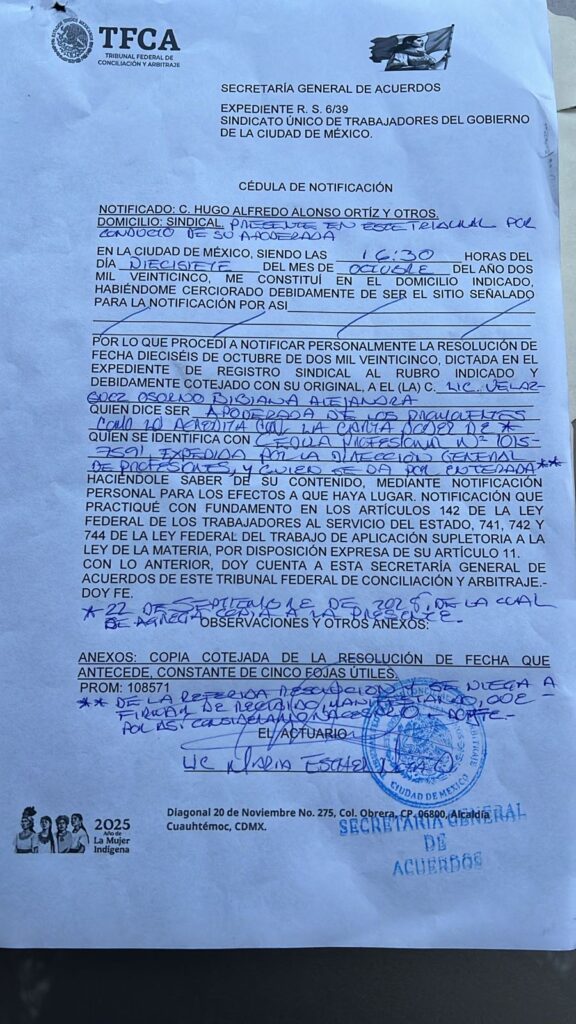 TFCA
TRIBUNAL FEDERAL DE
CONCILIACIÓN Y ARBITRAJE
SECRETARÍA GENERAL DE ACUERDOS
EXPEDIENTE R. S. 6/39
SINDICATO ÚNICO DE TRABAJADORES DEL GOBIERNO
DE LA CIUDAD DE MÉXICO.
CÉDULA DE NOTIFICACIÓN
NOTIFICADO: C. HUGO ALFREDO ALONSO ORTÍZ Y OTROS.
DOMICILIO: SINDICAL, PRESENTE EN ESTE TRIBUNAL POR
CONDUCTO DE SU APODERADA
EN LA CIUDAD DE MÉXICO, SIENDO LAS 16:30 HORAS DEL
DÍA DIECISIETE DEL MES DE OCTUBRE DEL AÑO DOS
MIL VEINTICINCO, ME CONSTITUÍ EN EL DOMICILIO INDICADO,
HABIÉNDOME CERCIORADO DEBIDAMENTE DE SER EL SITIO SEÑALADO
PARA LA NOTIFICACIÓN POR ASI
POR LO QUE PROCEDÍ A NOTIFICAR PERSONALMENTE LA RESOLUCIÓN DE
FECHA DIECISÉIS DE OCTUBRE DE DOS MIL VEINTICINCO, DICTADA EN EL
EXPEDIENTE DE REGISTRO SINDICAL AL RUBRO INDICADO Y
DEBIDAMENTE COTEJADO CON SU ORIGINAL, A EL (LA) C. LIC. VELAZ-
QUEZ OSORNO BIBIANA ALEJANDRA
QUIEN DICE SER APODERADA DE LOS PROMOVENTES
COMO LO ACREDITA CON LA CARTA PODER DE *
QUIEN SE IDENTIFICA CON CEDULA PROFESIONAL Nº 1015-
7591, EXPEDIDA POR LA DIRECCIÓN GENERAL
DE PROFESIONES, Y QUIEN SE DA POR ENTERADA **
HACIÉNDOLE SABER DE SU CONTENIDO, MEDIANTE NOTIFICACIÓN
PERSONAL PARA LOS EFECTOS A QUE HAYA LUGAR. NOTIFICACIÓN QUE
PRACTIQUÉ CON FUNDAMENTO EN LOS ARTÍCULOS 142 DE LA LEY
FEDERAL DE LOS TRABAJADORES AL SERVICIO DEL ESTADO, 741, 742 Y
744 DE LA LEY FEDERAL DEL TRABAJO DE APLICACIÓN SUPLETORIA A LA
LEY DE LA MATERIA, POR DISPOSICIÓN EXPRESA DE SU ARTÍCULO 11.
CON LO ANTERIOR, DOY CUENTA A ESTA SECRETARÍA GENERAL DE
ACUERDOS DE ESTE TRIBUNAL FEDERAL DE CONCILIACIÓN Y ARBITRAJE.-
DOY FE.
* 22 DE SEPTIEMBRE DE 2025 DE LA CUAL
SE AGREGA COPIA A LA PRESENTE.-
OBSERVACIONES Y OTROS ANEXOS:
ANEXOS: COPIA COTEJADA DE LA RESOLUCIÓN DE FECHA QUE
ANTECEDE, CONSTANTE DE CINCO FOJAS ÚTILES.
PROM: 108571
** DE LA REFERIDA RESOLUCIÓN Y SE NIEGA A
FIRMAR DE RECIBIDO, MANIFESTANDO, QUE
POR ASÍ CONSIDERARLO NECESARIO
EL ACTUARIO
LIC MARIA ESTHER
CIUDAD DE MÉXICO
SECRETARÍA GENERAL
DE
ACUERDOS
2025
Año de
La Mujer
Indígena
Diagonal 20 de Noviembre No. 275, Col. Obrera, CP. 06800, Alcaldía
Cuauhtémoc, CDMX.